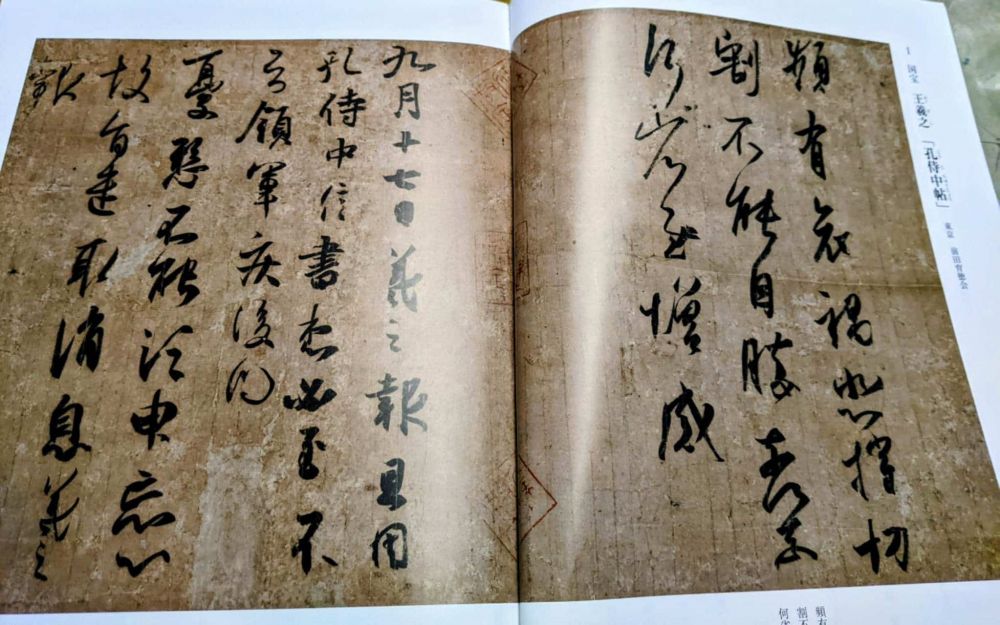 1 国宝 王羲之「孔侍中帖」 東京 前田育徳会
頻有哀禍悲摧切
割不能自勝奈何奈
何省慰增感
九月十七日羲之報且因
孔侍中信書想必至不
知領軍疾後問
憂懸不能須臾忘心
故旨遣取消息羲之
報
頻有
割不
何省